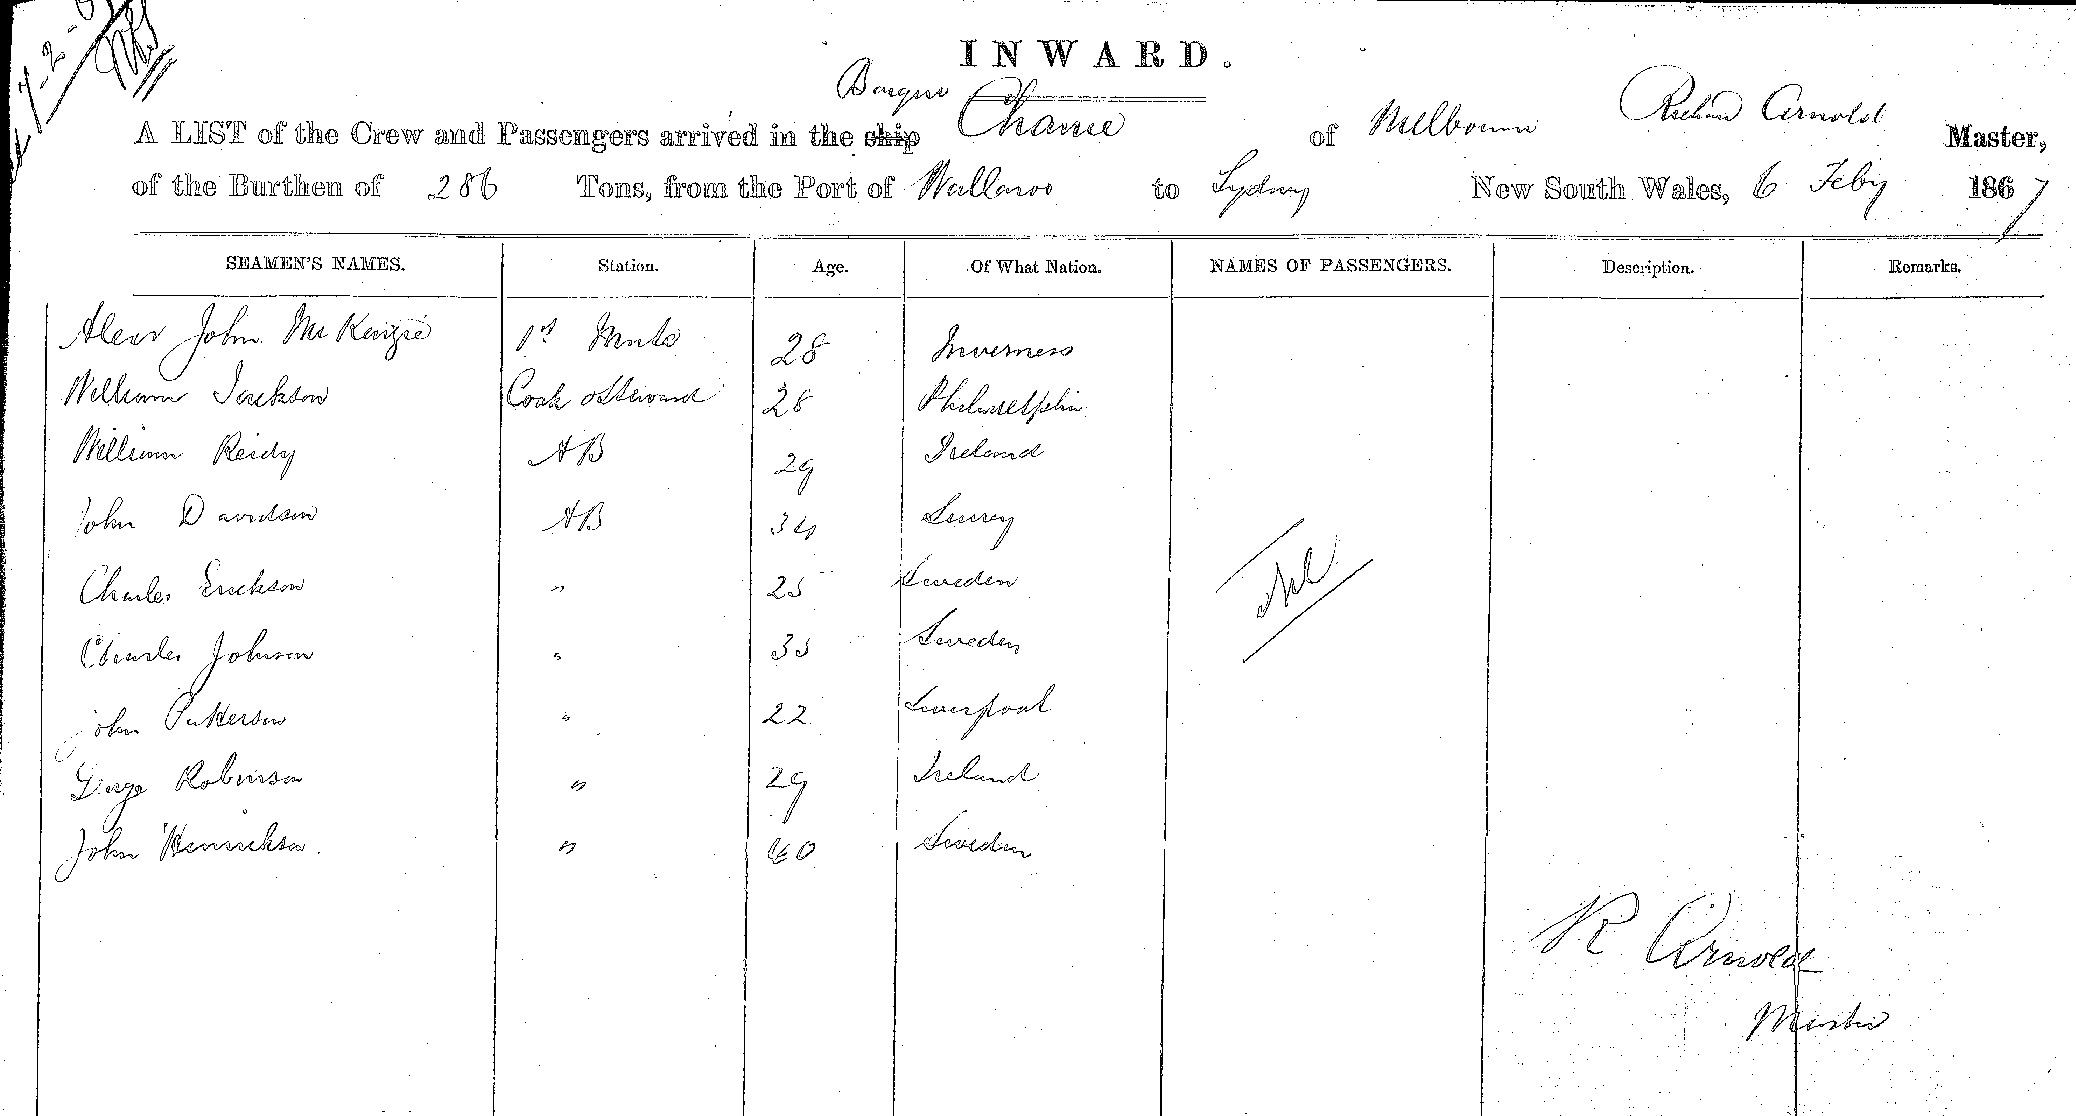 INWARD.
Barque
A LIST of the Crew and Passengers arrived in the ship Chance of Melbourne Richard Arnold Master,
of the Burthen of 286 Tons, from the Port of Wallaroo to Sydney New South Wales, 6 Feby 1867
SEAMEN'S NAMES. Station. Age. Of What Nation. NAMES OF PASSENGERS. Description. Remarks.
Alexr John McKenzie 1st Mate 28 Inverness
William Jackson Cook & Steward 28 Philadelphia
William Reidy AB 29 Ireland
John Davidson AB 34 Surrey
Charles Erickson " 25 Sweden
Charles Johnson " 35 Sweden
John Patterson " 22 Liverpool
George Robinson " 29 Ireland
John Henrickson. " 60 Sweden
Nil
R Arnold
Master